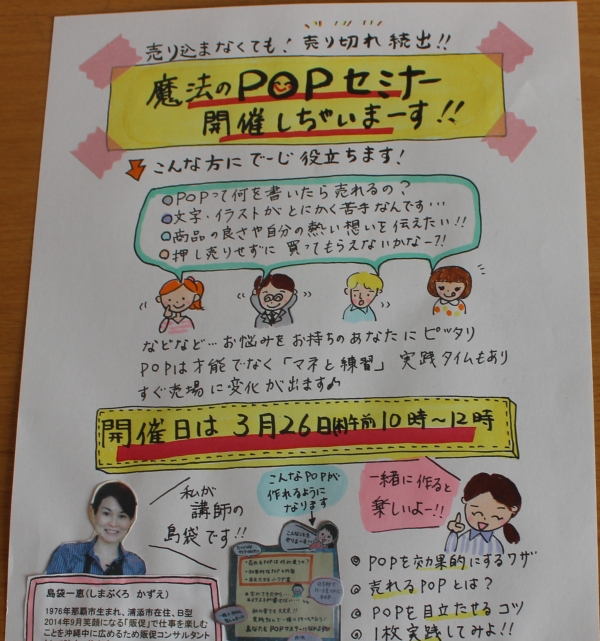 売り込まなくても！売り切れ続出！！
魔法のPOPセミナー
開催しちゃいまーす！！
こんな方にでーじ役立ちます！
POPって何を書いたら売れるの？
文字・イラストがとにかく苦手なんです…
商品の良さや自分の熱い想いを伝えたい！！
押し売りせずに買ってもらえないかなー？！
などなど…お悩みをお持ちのあなたにピッタリ
POPは才能でなく「マネと練習」実践タイムもあり
すぐ売場に変化が出ます♪
開催日は3月26日(木)午前10時〜12時
私が
講師の
島袋です！！
こんなPOPが
作れるように
なります
一緒に作ると
楽しいよー！！
島袋一恵(しまぶくろ かずえ)
1976年那覇市生まれ、浦添市在住、B型
2014年9月笑顔になる「販促」で仕事を楽しむ
ことを沖縄中に広めるため販促コンサルタント
POPを効果的にするワザ
売れるPOPとは？
POPを目立たせるコツ
1枚実践してみよ！！